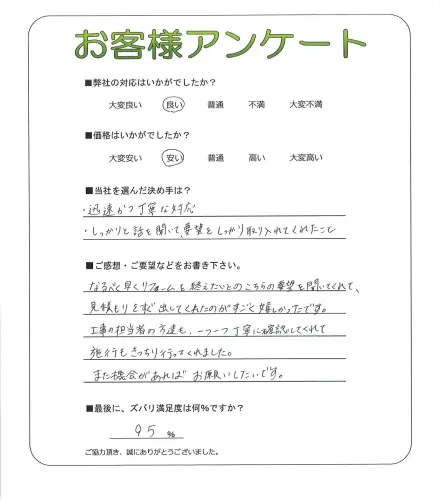 お客様アンケート
■弊社の対応はいかがでしたか?
大変良い 良い 普通 不満 大変不満
■価格はいかがでしたか?
大変安い 安い 普通 高い 大変高い
■当社を選んだ決め手は?
・迅速かつ丁寧な対応
・しっかりと話を聞いて、要望をしっかり取り入れてくれたこと
■ご感想・ご要望などをお書き下さい。
なるべく早くリフォームを終えたいとのこちらの要望を聞いてくれて、
見積もりをすぐ出してくれたのがすごく嬉しかったです。
工事の担当者の方達も、一つ一つ丁寧に確認してくれて
施行もきっちり行ってくれました。
また機会があればお願いしたいです。
■最後に、ズバリ満足度は何%ですか?
95 %
ご協力頂き、誠にありがとうございました。